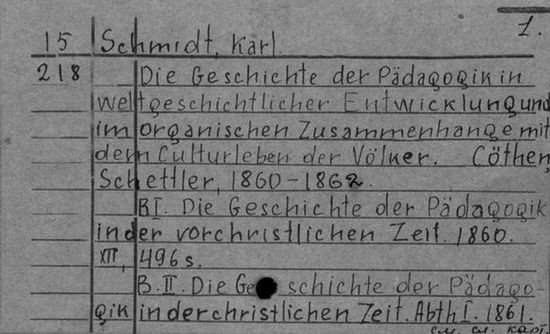 1.
15 Schmidt, Karl.
218 Die Geschichte der Pädagogik in
weltgeschichtlicher Entwicklung und
im organischen Zusammenhange mit
dem Culturleben der Völker. Cöthen,
Schettler, 1860-1862.
B I. Die Geschichte der Pädagogik
in der vorchristlichen Zeit. 1860.
XIII, 496 s.
B. II. Die Geschichte der Pädago-
gik in der christlichen Zeit. Abth I. 1861.
см. сл. кар.